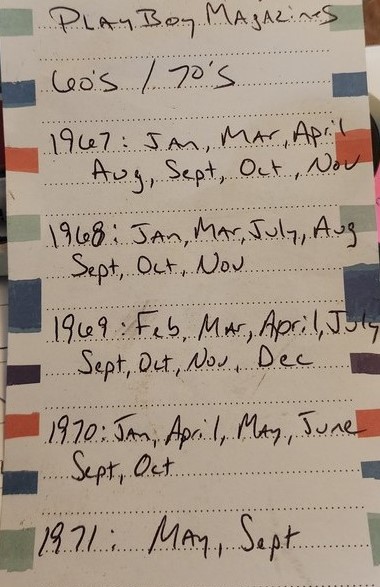 PLAYBOY MAGAZINES
60's / 70's
1967: JAN, MAR, April
Aug, Sept, Oct, Nov
1968: JAN, MAR, July, Aug
Sept, Oct, Nov
1969: Feb, MAR, April, July
Sept, Oct, Nov, Dec
1970: JAN, April, MAY, June
Sept, Oct
1971: MAY, Sept